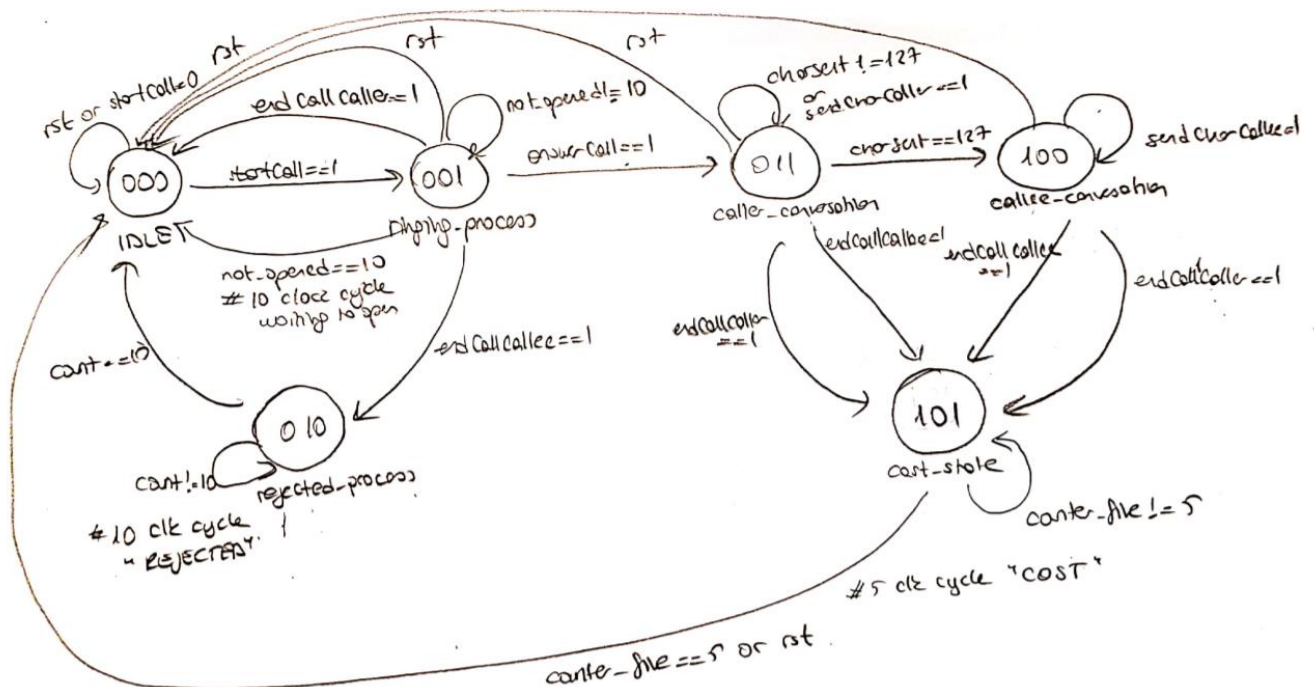 rst
rst
rst
rst or startCall=0
endCallCaller==1
not_opened!=10
charsent!=127
or
sendCharCaller==1
sendCharCallee=1
000
startCall==1
001
answerCall==1
011
charsent==127
100
IDLE
ringing_process
caller_conversation
callee_conversation
not_opened==10
# 10 clock cycle
waiting to open
endCallCallee=1
endCallCallee
==1
endCallCaller==1
cont==10
endCallCallee==1
endCallCaller
==1
010
101
cont!=10
rejected_process
cost_state
# 10 clk cycle
"REJECTED"
counter_five!=5
#5 clk cycle "COST"
counter_five==5 or rst